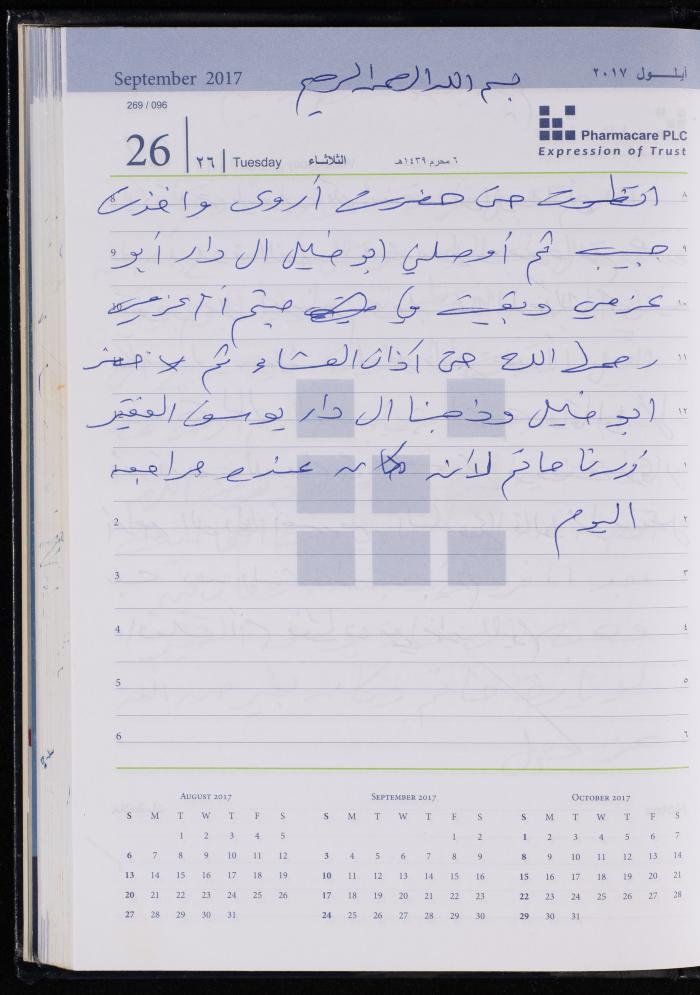 September 2017 بسم الله الرحمن الرحيم أيلول ٢٠١٧
269 / 096
26 ٢٦ Tuesday الثلاثاء ٦ محرم ١٤٣٩هـ
Pharmacare PLC
Expression of Trust
8 انتظرت حتى حضرت أروى واخذت ٨
9 حبيب ثم أوصلني ابو خليل ال دار أبو ٩
10 عزمي وبقيت في ميتم أ عزمي ١٠
11 رحمه الله حتى اذان العشاء ثم حضر ١١
ابو خليل وذهبنا ال دار يوسف الفقير ١٢
زرنا حاتم لأنه كان عنده مراجعه ١
2 اليوم ٢
3 ٣
4 ٤
5 ٥
6 ٦
AUGUST 2017
S M T W T F S
1 2 3 4 5
6 7 8 9 10 11 12
13 14 15 16 17 18 19
20 21 22 23 24 25 26
27 28 29 30 31
SEPTEMBER 2017
S M T W T F S
1 2
3 4 5 6 7 8 9
10 11 12 13 14 15 16
17 18 19 20 21 22 23
24 25 26 27 28 29 30
OCTOBER 2017
S M T W T F S
1 2 3 4 5 6 7
8 9 10 11 12 13 14
15 16 17 18 19 20 21
22 23 24 25 26 27 28
29 30 31